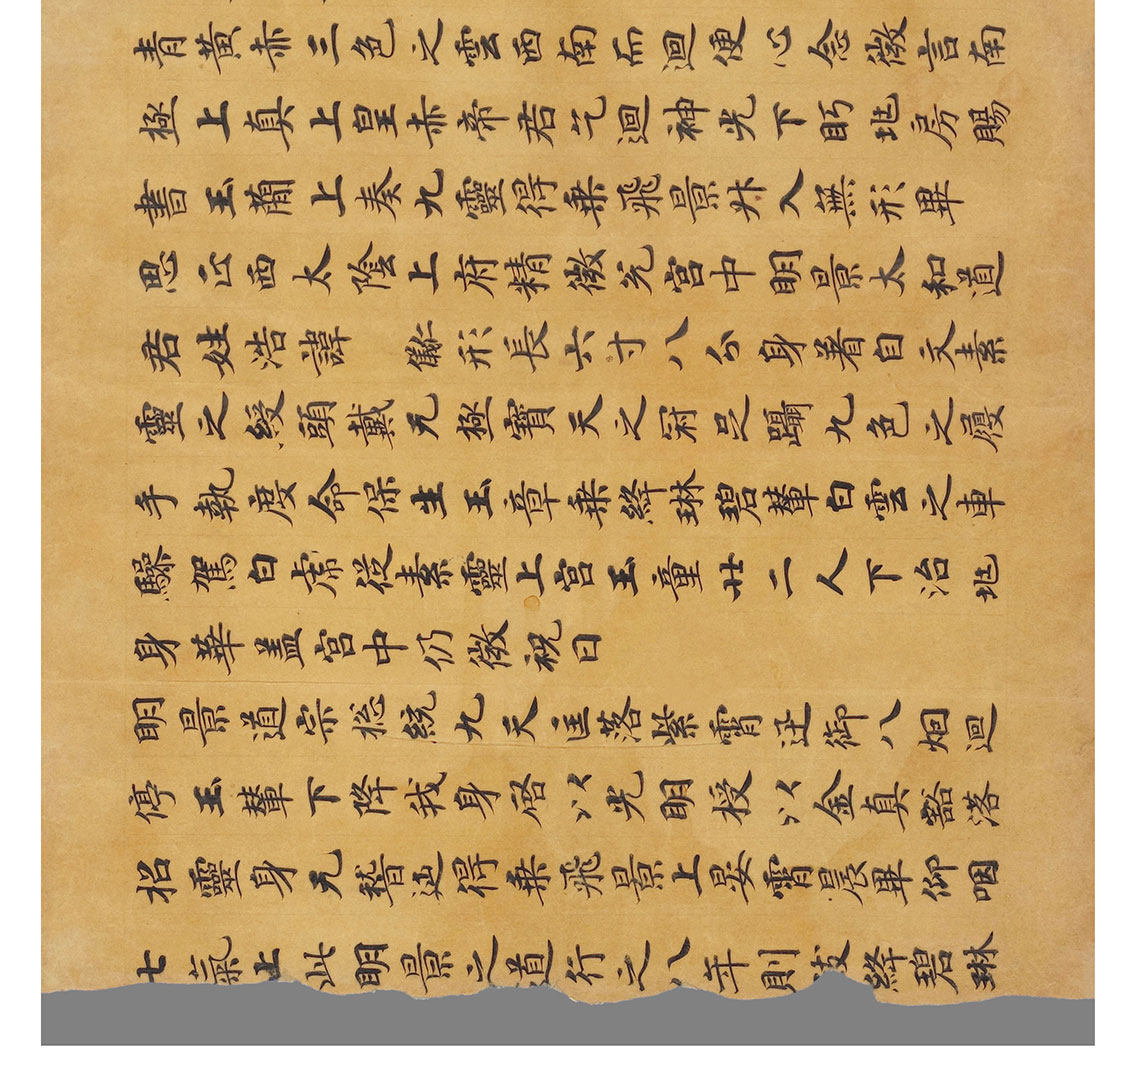 青黃赤三色之雲西南而迴便心念微言南
極上真上皇赤帝君乞迴神光下眄地房賜
書玉蘭上奏九靈得乘飛景升入無形畢
思正西太陰上府精微宮中明景太和道
君姓浩諱 形長六寸八分身著自文素
靈之綬頭戴无極寶天之冠足躡九色之履
手執度命保生玉章乘絳琳碧輦白雲之車
驂駕白虎從素靈上宮玉童廿二人下治地
身華蓋宮中仍微祝曰
明景道宗總統九天匡落紫霄迅御八烟迴
停玉輦下降我身啓以光明授以金真豁落
招靈身无稽延得乘飛景上晏霄晨畢仰咽
七氣止此明景之道行之八年則絳碧琳